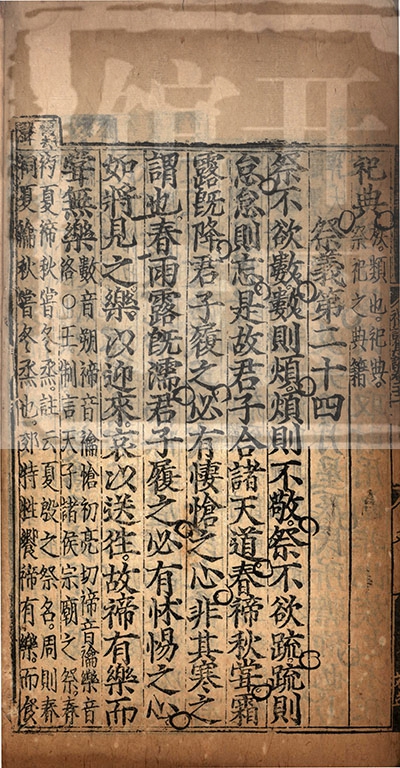 祀典族類也祀典。
祭祀之典籍
祭義第二十四
祭不欲數數則煩。煩則不敬。祭不欲疏。疏則
怠。怠則忘。是故君子合諸天道。春禘秋嘗。霜
露旣降。君子履之。必有悽愴之心。非其寒之
謂也。春雨露旣濡。君子履之。必有怵惕之心。
如將見之。樂以迎來。哀以送往。故禘有樂而
嘗無樂數音朔禘音論愴初亮切禘音論樂音
洛○王制言天子諸侯宗廟之祭。春
礿夏禘秋嘗冬烝。註云夏殷之祭名。周則春
祠夏禴秋嘗冬烝也。郊特牲饗禘有樂。而食